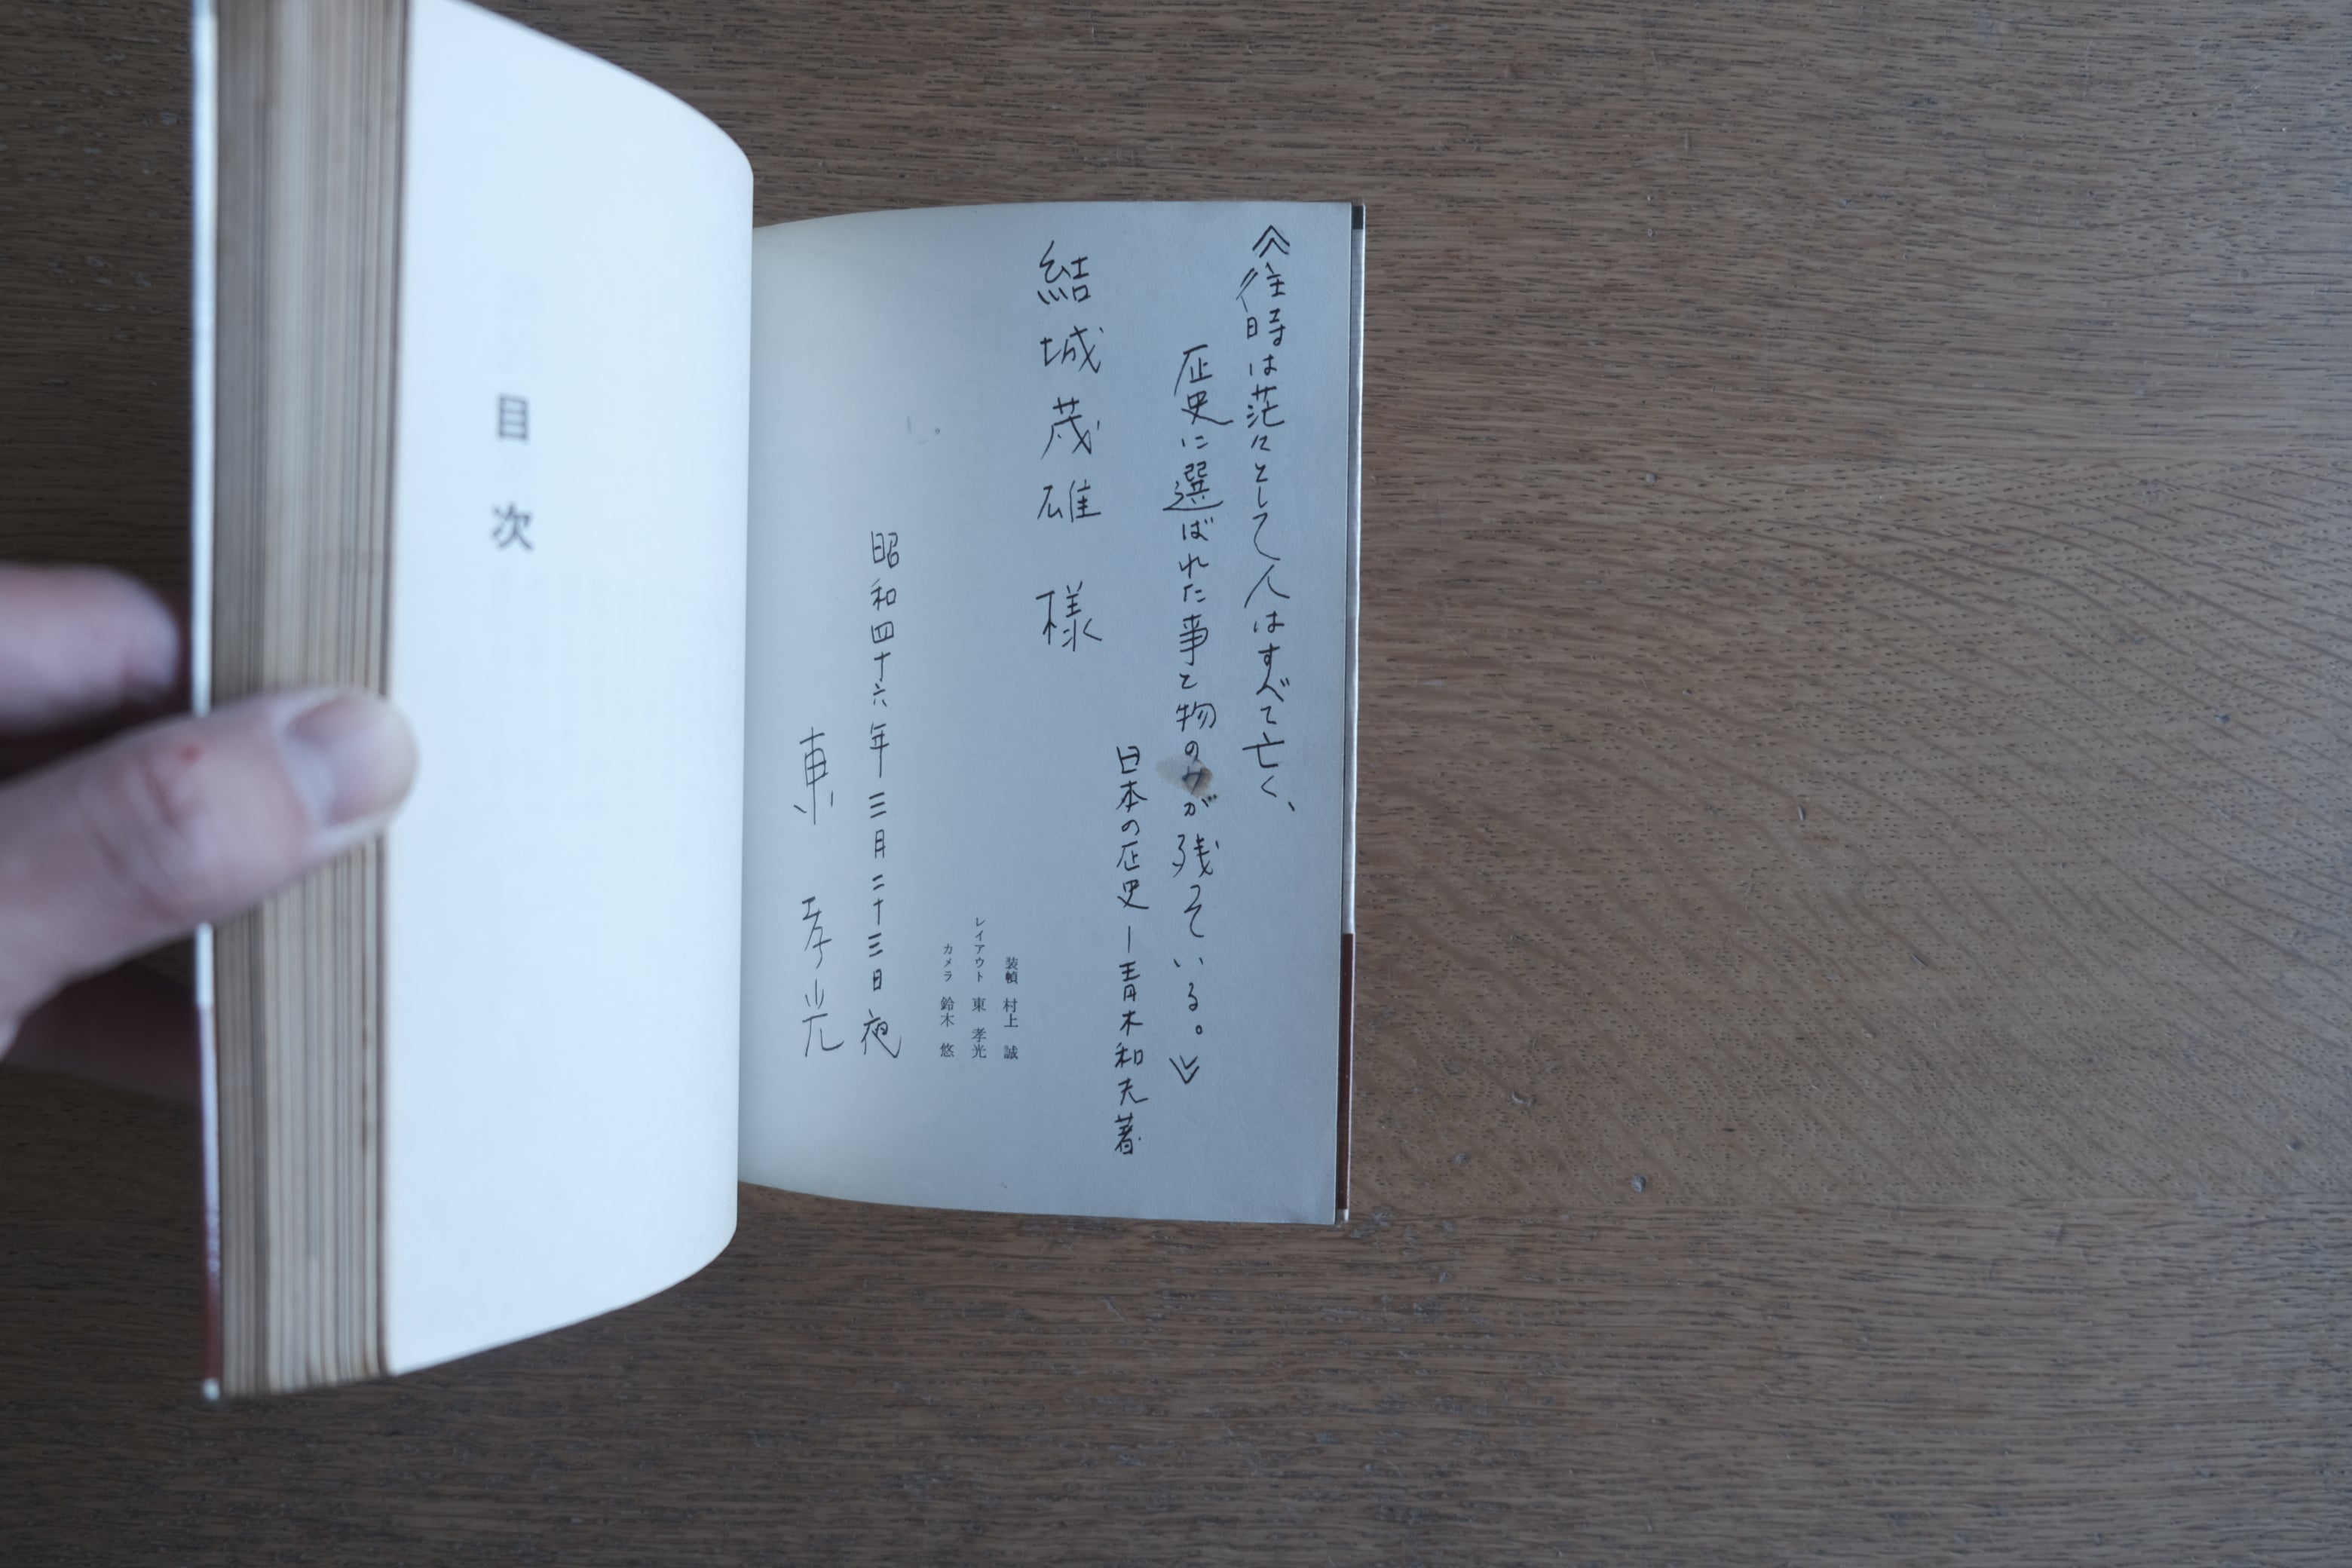 《往時は茫々として人はすべて亡く、
歴史に選ばれた事と物のみが残っている。》
日本の歴史 ー青木和夫著
結城茂雄 様
装幀 村上 誠
レイアウト 東 孝光
カメラ 鈴木 悠
昭和四十六年 三月二十三日 夜
東 孝光
目次